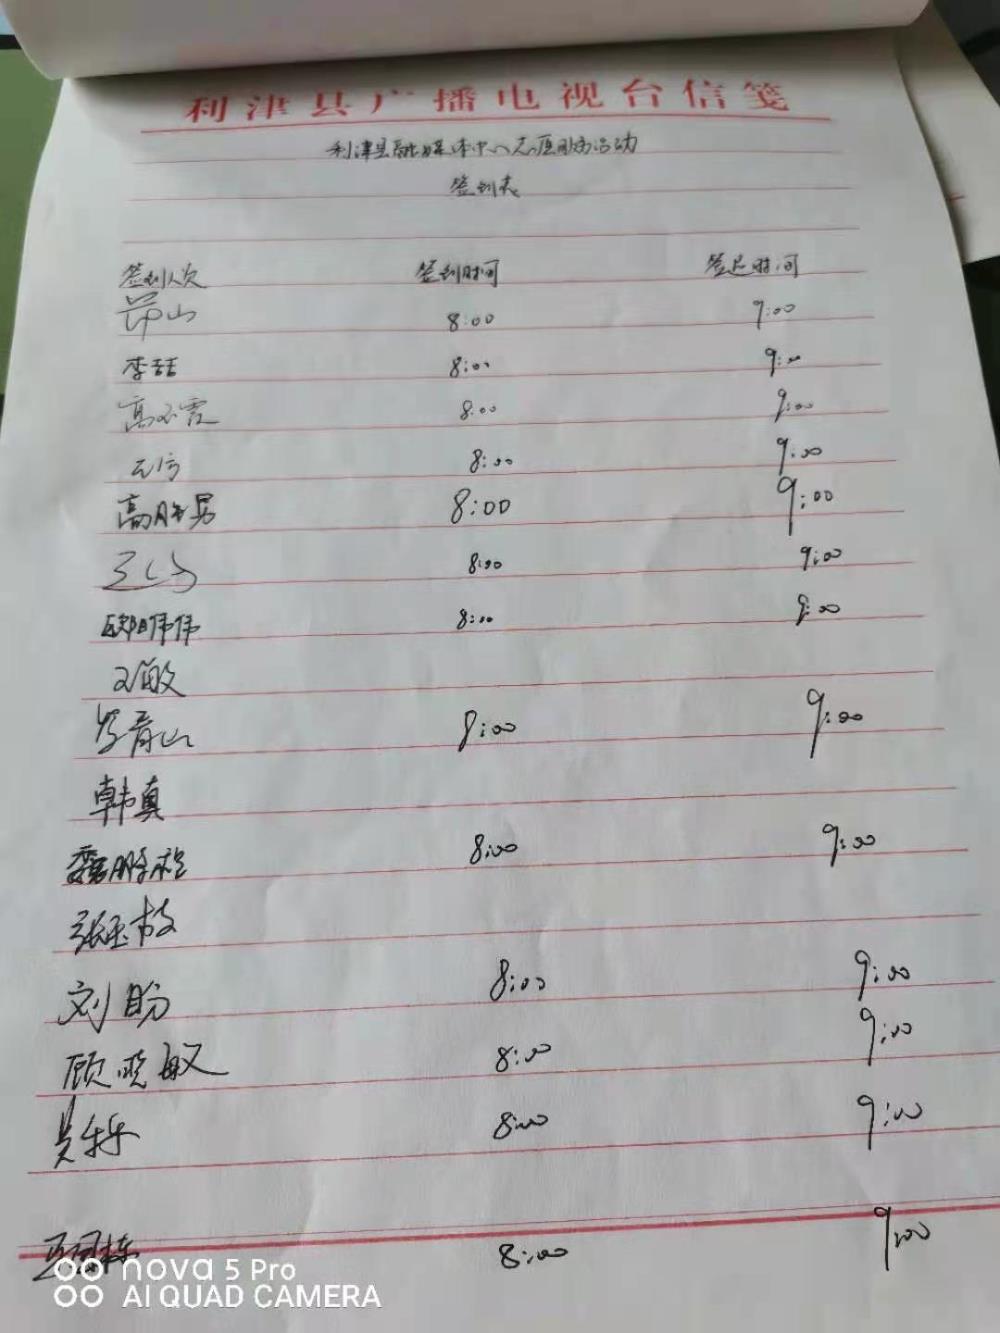 利津县广播电视台信笺
利津县融媒体中心志愿服务活动
签到表
签到人次 签到时间 签退时间
山 8:00 9:00
李喆 8:00 9:00
高 霞 8:00 9:00
8:00 9:00
高胜男 8:00 9:00
8:00 9:00
欧阳伟伟 8:00 9:00
敏
青山 8:00 9:00
韩真
鹏程 8:00 9:00
张玉枝
刘盼 8:00 9:00
顾晓敏 8:00 9:00
吴乐乐 8:00 9:00
栋 8:00 9:00
nova 5 Pro
AI QUAD CAMERA